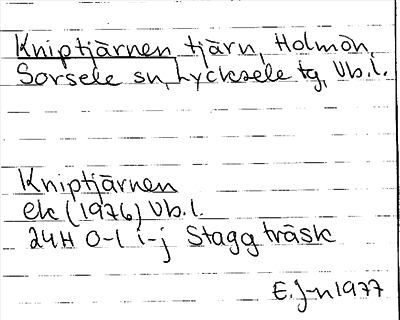 Kniptjärnen tjärn, Holmön,
Sorsele sn, Lycksele tg, Vb.l.
Kniptjärnen
ek (1976) Vb.l.
24H 0-1 i-j Staggträsk
E.J-n 1977